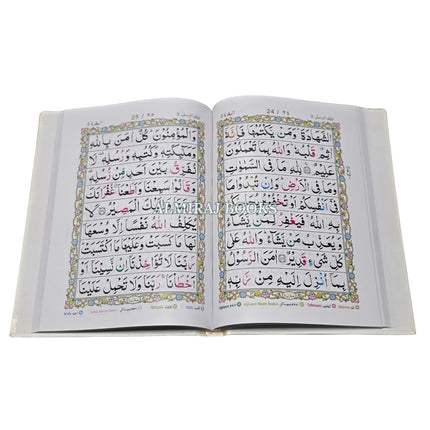 24 / ٢٤
الشَّهَادَةَ وَمَنْ يَّكْتُمْهَا فَاِنَّهٗٓ
اٰثِمٌ قَلْبُهٗ وَاللّٰهُ بِمَا تَعْمَلُوْنَ
عَلِيْمٌ لِلّٰهِ مَا فِى السَّمٰوٰتِ
وَمَا فِى الْاَرْضِ وَاِنْ تُبْدُوْا مَا
فِىْٓ اَنْفُسِكُمْ اَوْ تُخْفُوْهُ يُحَاسِبْكُمْ
بِهِ اللّٰهُ فَيَغْفِرُ لِمَنْ يَّشَآءُ
وَيُعَذِّبُ مَنْ يَّشَآءُ وَاللّٰهُ عَلٰى
كُلِّ شَىْءٍ قَدِيْرٌ اٰمَنَ الرَّسُوْلُ
بِمَآ اُنْزِلَ اِلَيْهِ مِنْ رَّبِّهٖ
25 / ٢٥
وَالْمُؤْمِنُوْنَ كُلٌّ اٰمَنَ بِاللّٰهِ
وَمَلٰٓئِكَتِهٖ وَكُتُبِهٖ وَرُسُلِهٖ لَا
نُفَرِّقُ بَيْنَ اَحَدٍ مِّنْ رُّسُلِهٖ
وَقَالُوْا سَمِعْنَا وَاَطَعْنَا غُفْرَانَكَ
رَبَّنَا وَاِلَيْكَ الْمَصِيْرُ لَا
يُكَلِّفُ اللّٰهُ نَفْسًا اِلَّا وُسْعَهَا
لَهَا مَا كَسَبَتْ وَعَلَيْهَا مَا اكْتَسَبَتْ
رَبَّنَا لَا تُؤَاخِذْنَآ اِنْ نَّسِيْنَآ اَوْ
اَخْطَاْنَا رَبَّنَا وَلَا تَحْمِلْ عَلَيْنَآ
ALMIRAJ BOOKS